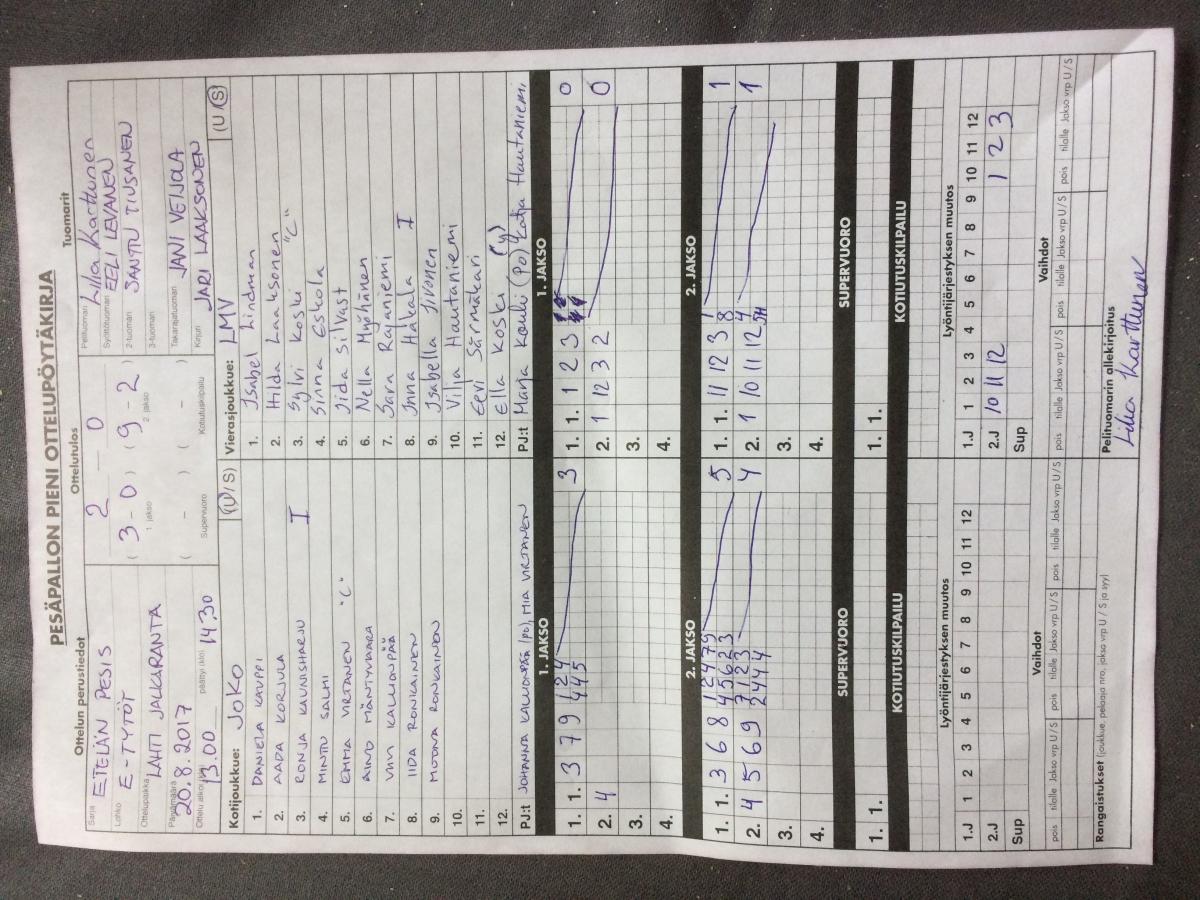 PESÄPALLON PIENI OTTELUPÖYTÄKIRJA
Ottelun perustiedot
Sarja ETELÄN PESIS
Lohko E-TYTÖT
Ottelupaikka LAHTI JALKARANTA
Päivämäärä 20.8.2017
Ottelu alkoi (klo) 13.00 päättyi (klo) 14.30
Ottelutulos
2 - 0
( 3 - 0 ) ( 9 - 2 )
1. jakso 2. jakso
( - ) ( - )
Supervuoro Kotiutuskilpailu
Tuomarit
Pelituomari Lilia Karttunen
Syöttötuomari EELI LEVANEN
2-tuomari SANTTU TIUSANEN
3-tuomari
Takarajatuomari JANI VEIJOLA
Kirjuri JARI LAAKSONEN
Kotijoukkue: JoKo (U / S)
1. DANIELA KAUPPI
2. AADA KORJULA
3. RONJA KAUNISHARJU I
4. MINTTU SALMI
5. EMMA VIRTANEN "C"
6. AINO MÄNTYVAARA
7. VIIVI KALLIONPÄÄ
8. IIDA RONKAINEN
9. MOONA RONKAINEN
10.
11.
12.
PJ:t JOHANNA KALLIONPÄÄ (PJ), MIA VIRTANEN
Vierasjoukkue: LMV (U / S)
1. Isabel Lindman
2. Hilda Laaksonen
3. Sylvi Koski "C"
4. Sinna Eskola
5. Iida Silvast
6. Nella Myöhänen
7. Sara Rajaniemi
8. Inna Hakala I
9. Isabella Iivonen
10. Vilja Hautaniemi
11. Eevi Särmäkari
12. Ella Koski (y)
PJ:t Marja Kouhi (PJ) Katja Hautaniemi
1. JAKSO
1. 1. 3 7 9 4 2 4 3
4 4 5
2. 4
3.
4.
1. JAKSO
1. 1. 1 2 3 0
2. 1 12 3 2 0
3.
4.
2. JAKSO
1. 1. 3 6 8 1 2 4 7 9 5
4 5 6 2 3
2. 4 5 6 9 7 1 2 3 4
2 4 4 4
3.
4.
2. JAKSO
1. 1. 11 12 3 1 8 1
2. 1 10 11 12 1
3.
4.
SUPERVUORO
1. 1.
SUPERVUORO
1. 1.
KOTIUTUSKILPAILU
KOTIUTUSKILPAILU
Lyöntijärjestyksen muutos
1.J 1 2 3 4 5 6 7 8 9 10 11 12
2.J
Sup
Lyöntijärjestyksen muutos
1.J 1 2 3 4 5 6 7 8 9 10 11 12
2.J 10 11 12 1 2 3
Sup
Vaihdot
pois tilalle Jakso vrp U / S pois tilalle Jakso vrp U / S pois tilalle Jakso vrp U / S
Vaihdot
pois tilalle Jakso vrp U / S pois tilalle Jakso vrp U / S
Rangaistukset (joukkue, pelaaja nro, jakso vrp U / S ja syy)
Pelituomarin allekirjoitus
Lilia Karttunen